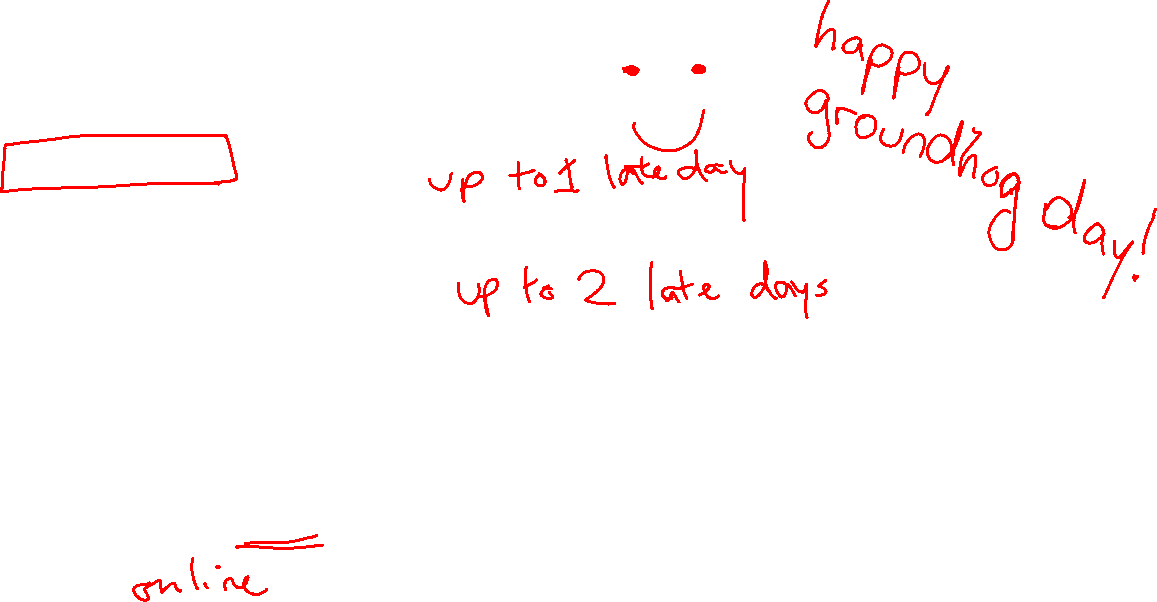 happy
groundhog day!
up to 1 late day
up to 2 late days
online